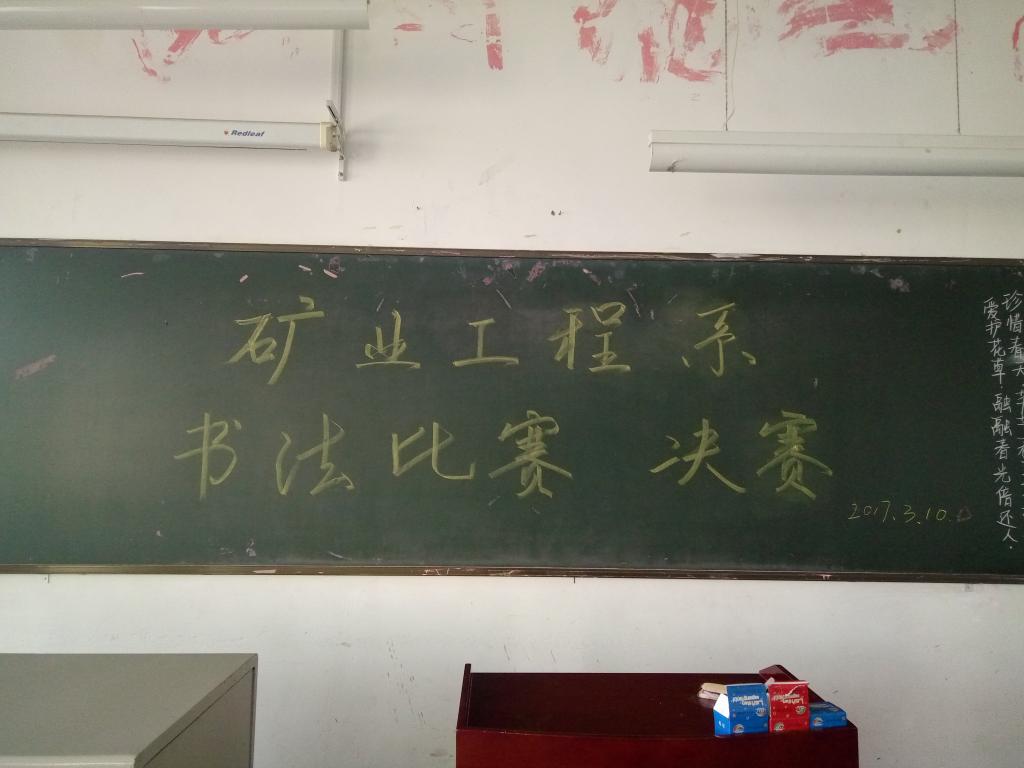 Redleaf
矿业工程系
书法比赛 决赛
2017.3.10.
珍惜春天
爱护花草.融融春光倍还人.